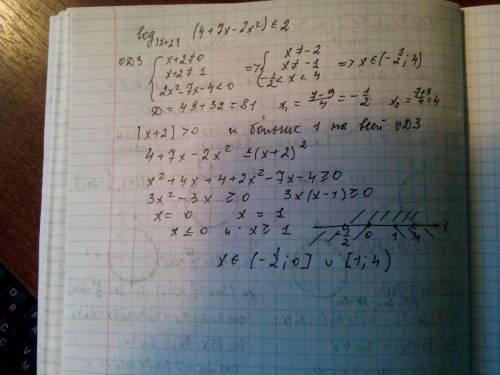 log|x+2| (4+7x-2x²) ≤ 2
ОДЗ { x+2≠0 => { x≠-2
x+2≠1 x≠-1 => x∈(-1/2; 4)
2x²-7x-4<0 -1/2<x<4
D = 49+32=81 x₁ = (7-9)/4 = -1/2 x₂ = (7+9)/4 = 4
|x+2| >0 и больше 1 на всей ОДЗ
4+7x-2x² ≤ (x+2)²
x²+4x+4+2x²-7x-4≥0
3x²-3x ≥0 3x(x-1)≥0
x= 0 x = 1
x≤0 и x≥1
-1/2 0 1 4 x
x∈ (-1/2; 0] ∪ [1; 4)